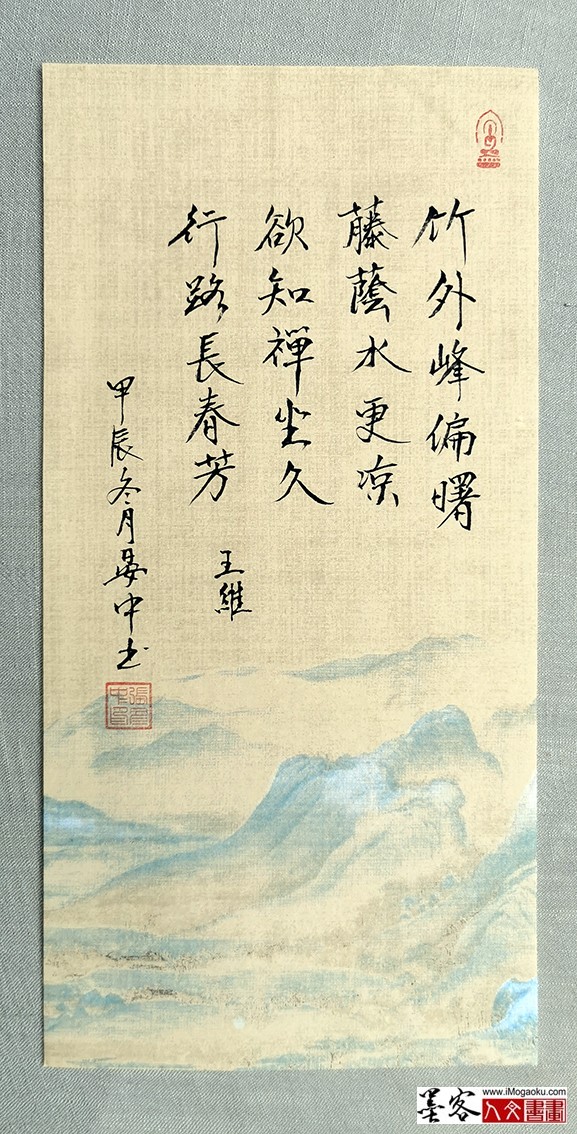 竹外峰偏曙
藤蔭水更涼
欲知禪坐久
行路長春芳
王維
甲辰冬月晏中书
www.iMogaoku.com
墨客
人文書畫